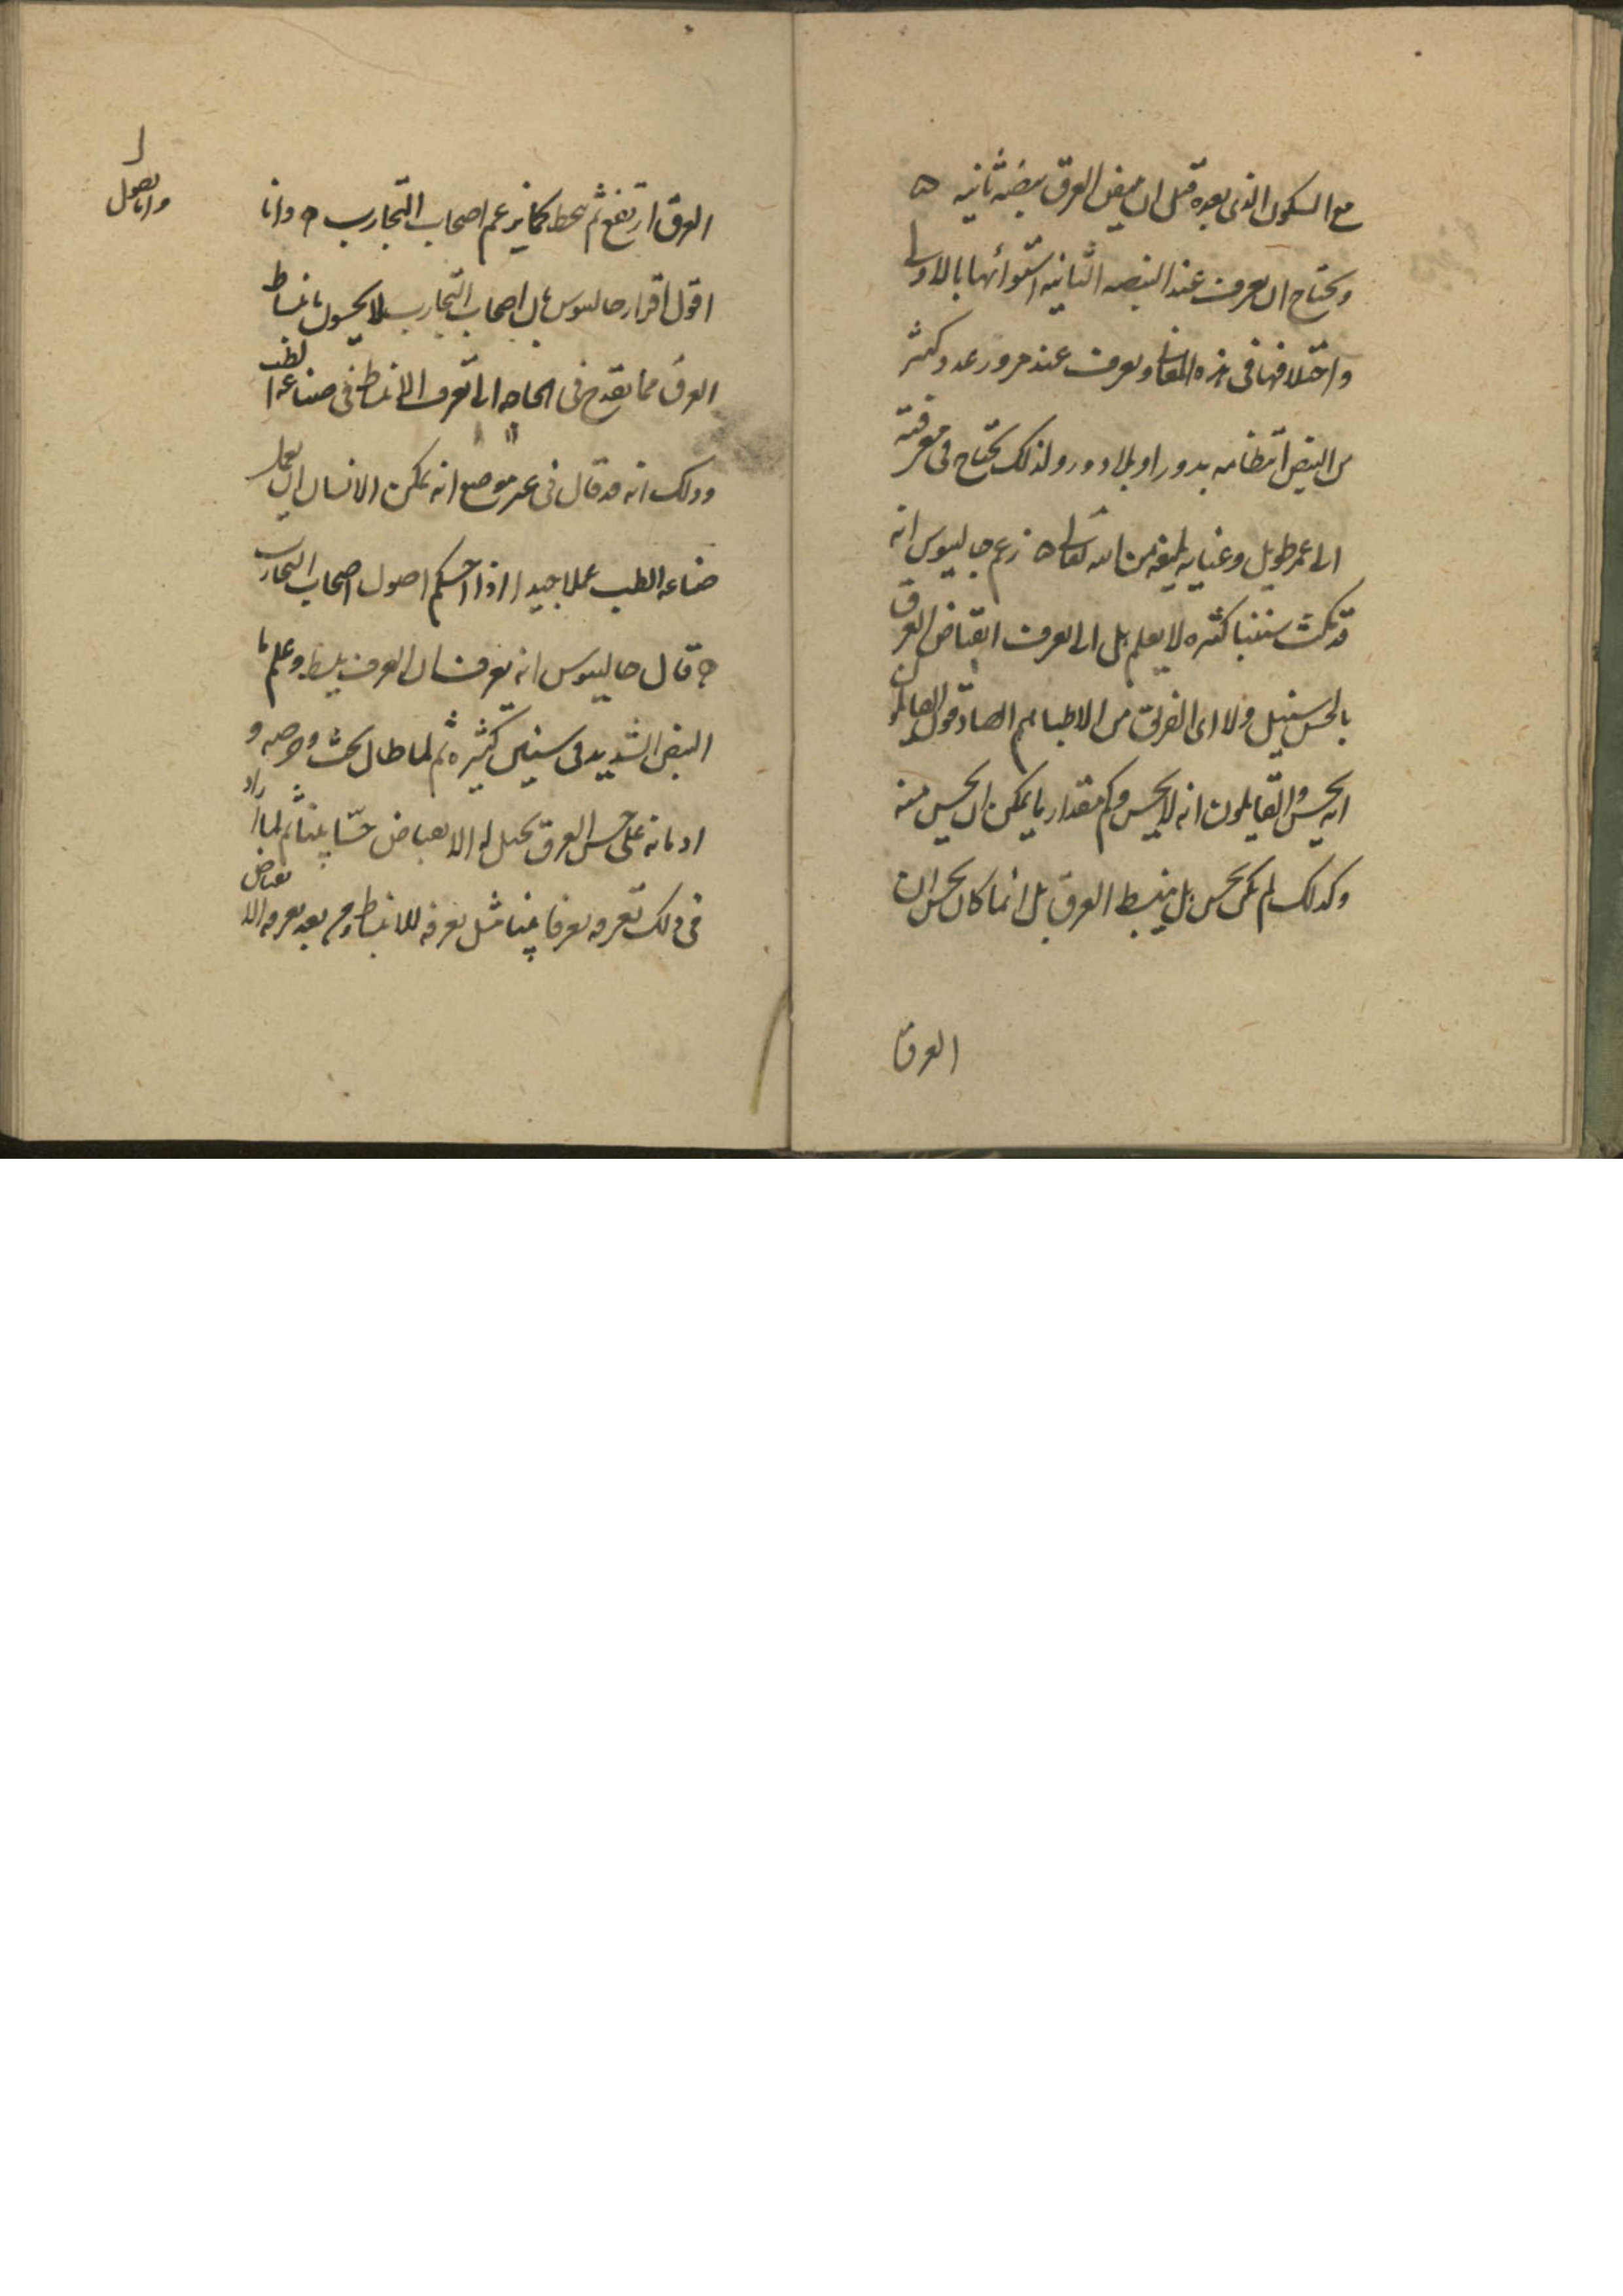 مع السكون الذى بعده قبل ان ينبض العرق نبضة ثانيه ه
ويحتاج ان يعرف عند النبضه الثانيه استوائها بالاولى
واختلافها فى هذه المعانى ويعرف عند مرور عدد كثير
من النبض انتظامه بدور او بلا دور ولذلك يحتاج فى معرفته
الى عمر طويل وعنايه بليغه من الله تعالى ه زعم جالينوس انه
قد مكث سنينا كثيره لا يعلم هل الى تعرف انقباض العرق
بالحس سبيل ولا اى الفرق من الاطباء هم الصادقون القائلون
انه يحس او القايلون انه لا يحس وكم مقدار ما يمكن ان يحس منه
وكذلك لم يكن يحس هل ينبسط العرق بل انما كان يحس ان
العرق
العرق ارتفع ثم ينحط كما يزعم اصحاب التجارب ه وانا
اقول اقرار جالينوس بان اصحاب التجارب لا يحسون بانبساط
العرق مما يقدح فى الحاجه الى تعرف الانبساط فى صناعه الطب
وذلك انه قد قال فى غير موضع انه يمكن الانسان ان يعمل
صناعه الطب عملا جيدا اذا احكم اصول اصحاب التجارب
ه قال جالينوس انه تعرف ان العرق ينبسط وعلم ما
النبض الشديد فى سنين كثيره ثم لما طال بحثه وحرصه و
ادمانه على حس العرق تخيل له الانقباض حسّا بينا ثم لما زاد
فى ذلك تعرفه تعرفا بينا مثل تعرفه للانبساط ومن بعد تعرفه الانقباض
وانا اقول